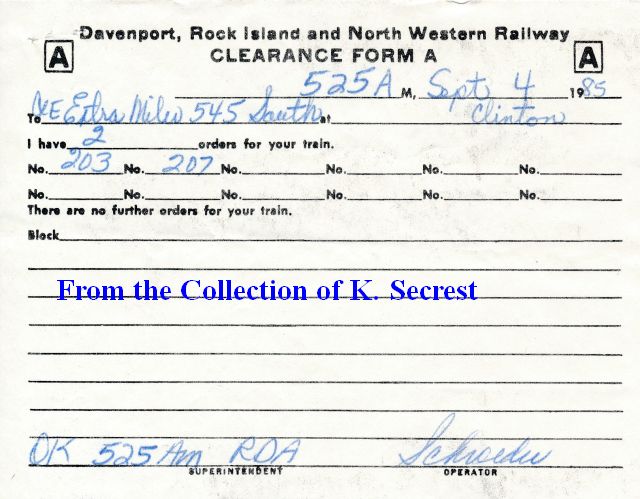 Davenport, Rock Island and North Western Railway
A CLEARANCE FORM A A
525 A M, Sept 4 1985
To C&E Extra Milw 545 South at Clinton
I have 2 orders for your train.
No. 203 No. 207 No. No. No. No.
No. No. No. No. No. No.
There are no further orders for your train.
Block
From the Collection of K. Secrest
OK 525 Am RDA Schroeder
SUPERINTENDENT OPERATOR